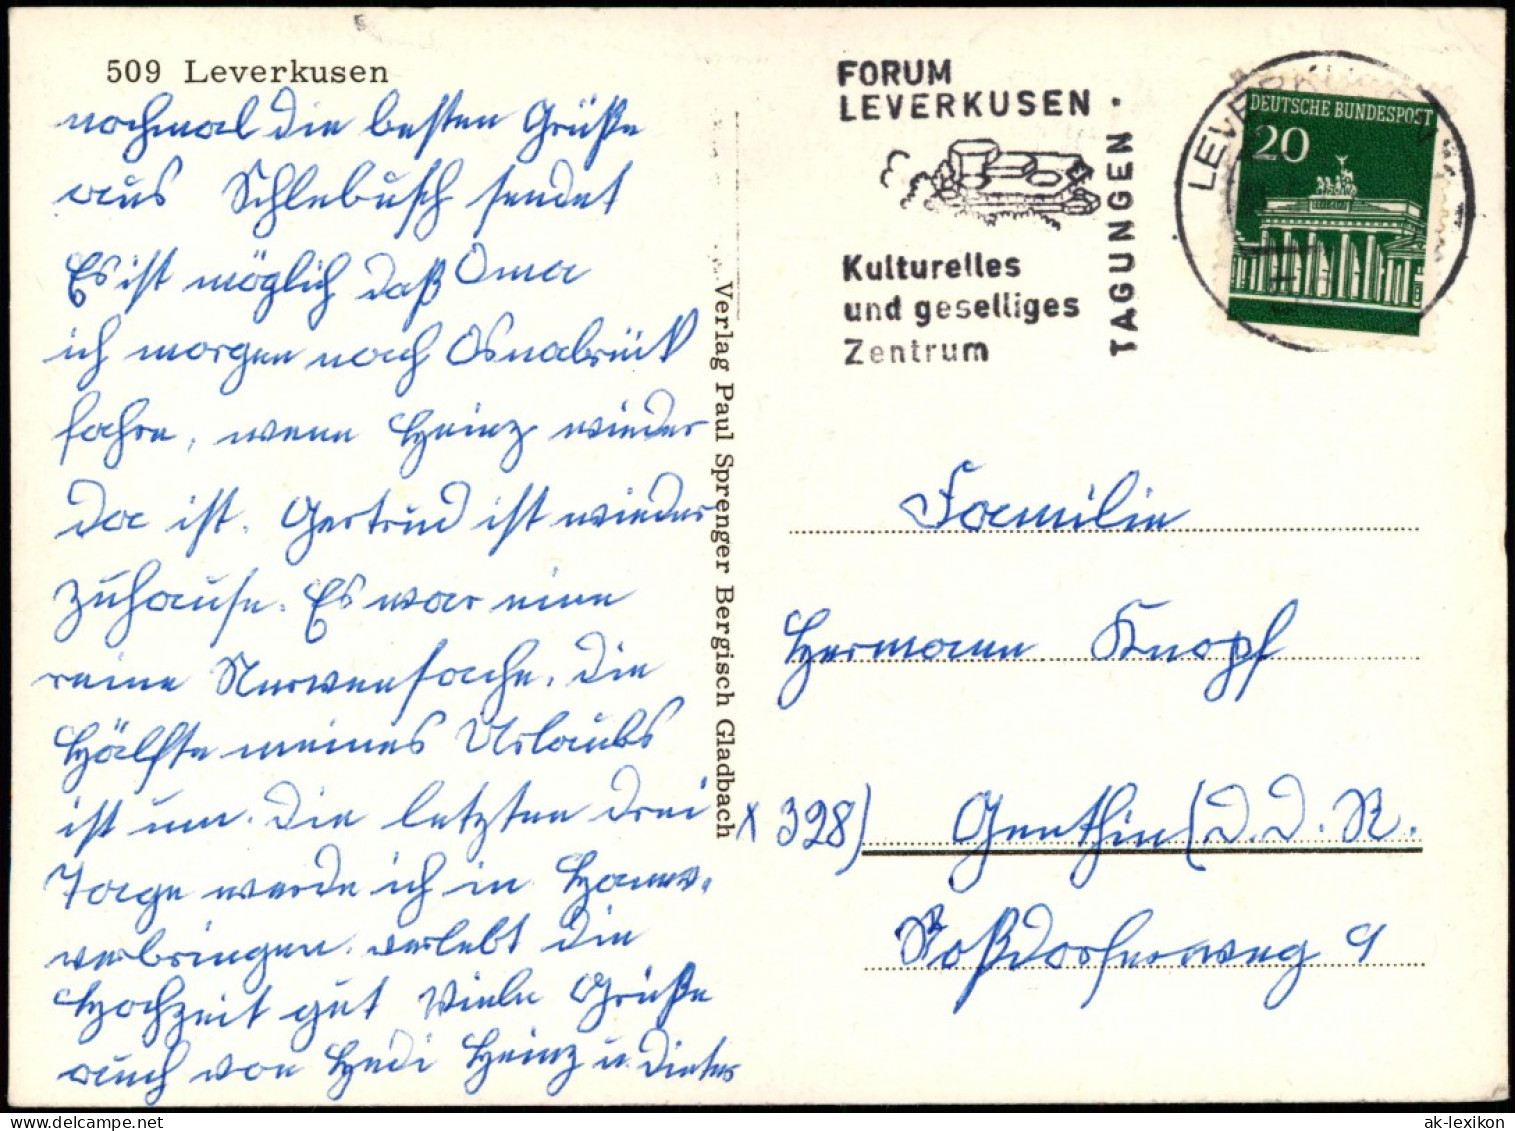 509 Leverkusen
nochmal die besten Grüße
aus Schlebusch sendet
Es ist möglich daß Oma
ich morgen nach Osnabrück
fahre, wenn Heinz wieder
da ist. Gertrud ist wieder
zuhause. Es war eine
reine Nervensache. Die
Hälfte meines Urlaubs
ist um. Die letzten drei
Tage werde ich in Hannov.
verbringen. verlebt die
Hochzeit gut Viele Grüße
auch von Hedi Heinz u. Dieter
Verlag Paul Sprenger Bergisch Gladbach
FORUM
LEVERKUSEN ·
TAGUNGEN
Kulturelles
und geselliges
Zentrum
LEVERKUSEN
DEUTSCHE BUNDESPOST
20
Familie
Hermann Knopf
X 328) Genthin (D.D.R.
Roßdorferweg 9
ak-lexikon.com